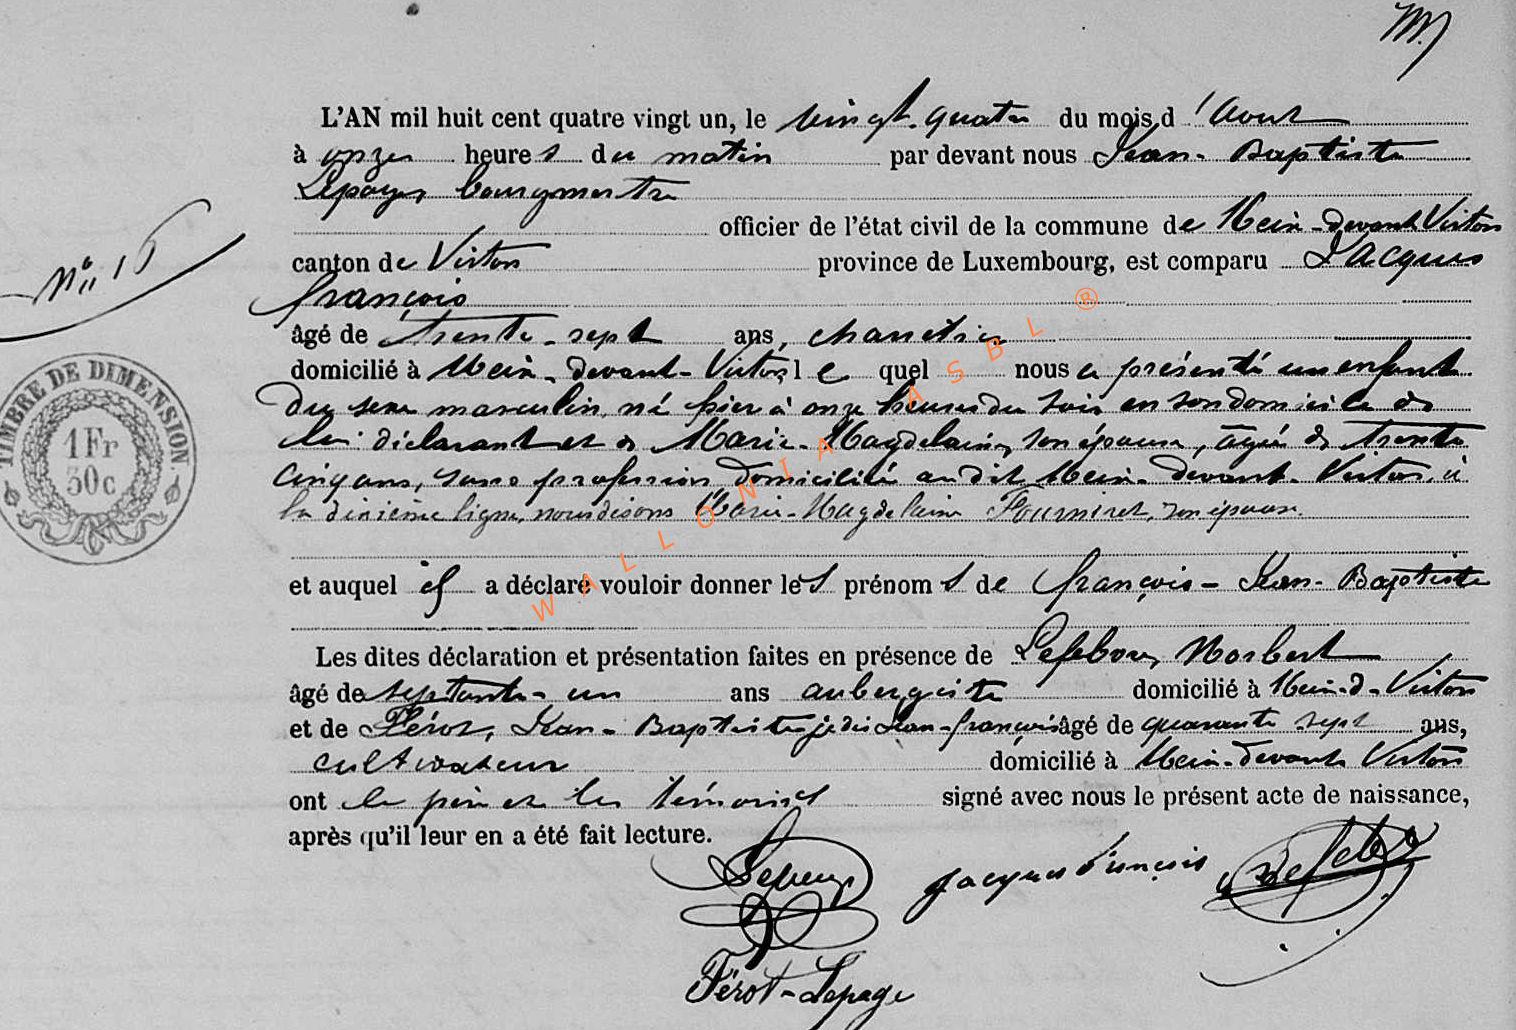 L'AN mil huit cent quatre vingt un, le vingt-quatre du mois d'Aout
à onze heures du matin par devant nous Jean-Baptiste
Lepage, bourgmestre
officier de l'état civil de la commune de Meix-devant Virton
N° 16
canton de Virton province de Luxembourg, est comparu Jacques
françois
âgé de trente-sept ans,
domicilié à Meix-devant-Virton, lequel nous a présenté un enfant
du sexe masculin, né hier à onze heures du soir en son domicile de
lui déclarant et de Marie-Magdelaine, son épouse, âgée de trente
cinq ans, sans profession domiciliée au dit Meix-devant-Virton, à
la dixième ligne, nous disons Marie-Magdelaine Fourniret, son épouse.
et auquel il a déclaré vouloir donner les prénoms de françois-Jean-Baptiste
Les dites déclaration et présentation faites en présence de Lefebvre, Norbert
âgé de septante-un ans aubergiste domicilié à Meix-d-Virton
et de Férot, Jean-Baptiste, je dis Jean-françois âgé de quarante sept ans,
cultivateur domicilié à Meix-devant Virton
ont le père et les témoins signé avec nous le présent acte de naissance,
après qu'il leur en a été fait lecture.
Lepage Jacques françois Lefeb
Férot-Lepage
TIMBRE DE DIMENSION.
1Fr
30c
WALLONIA ASBL ®